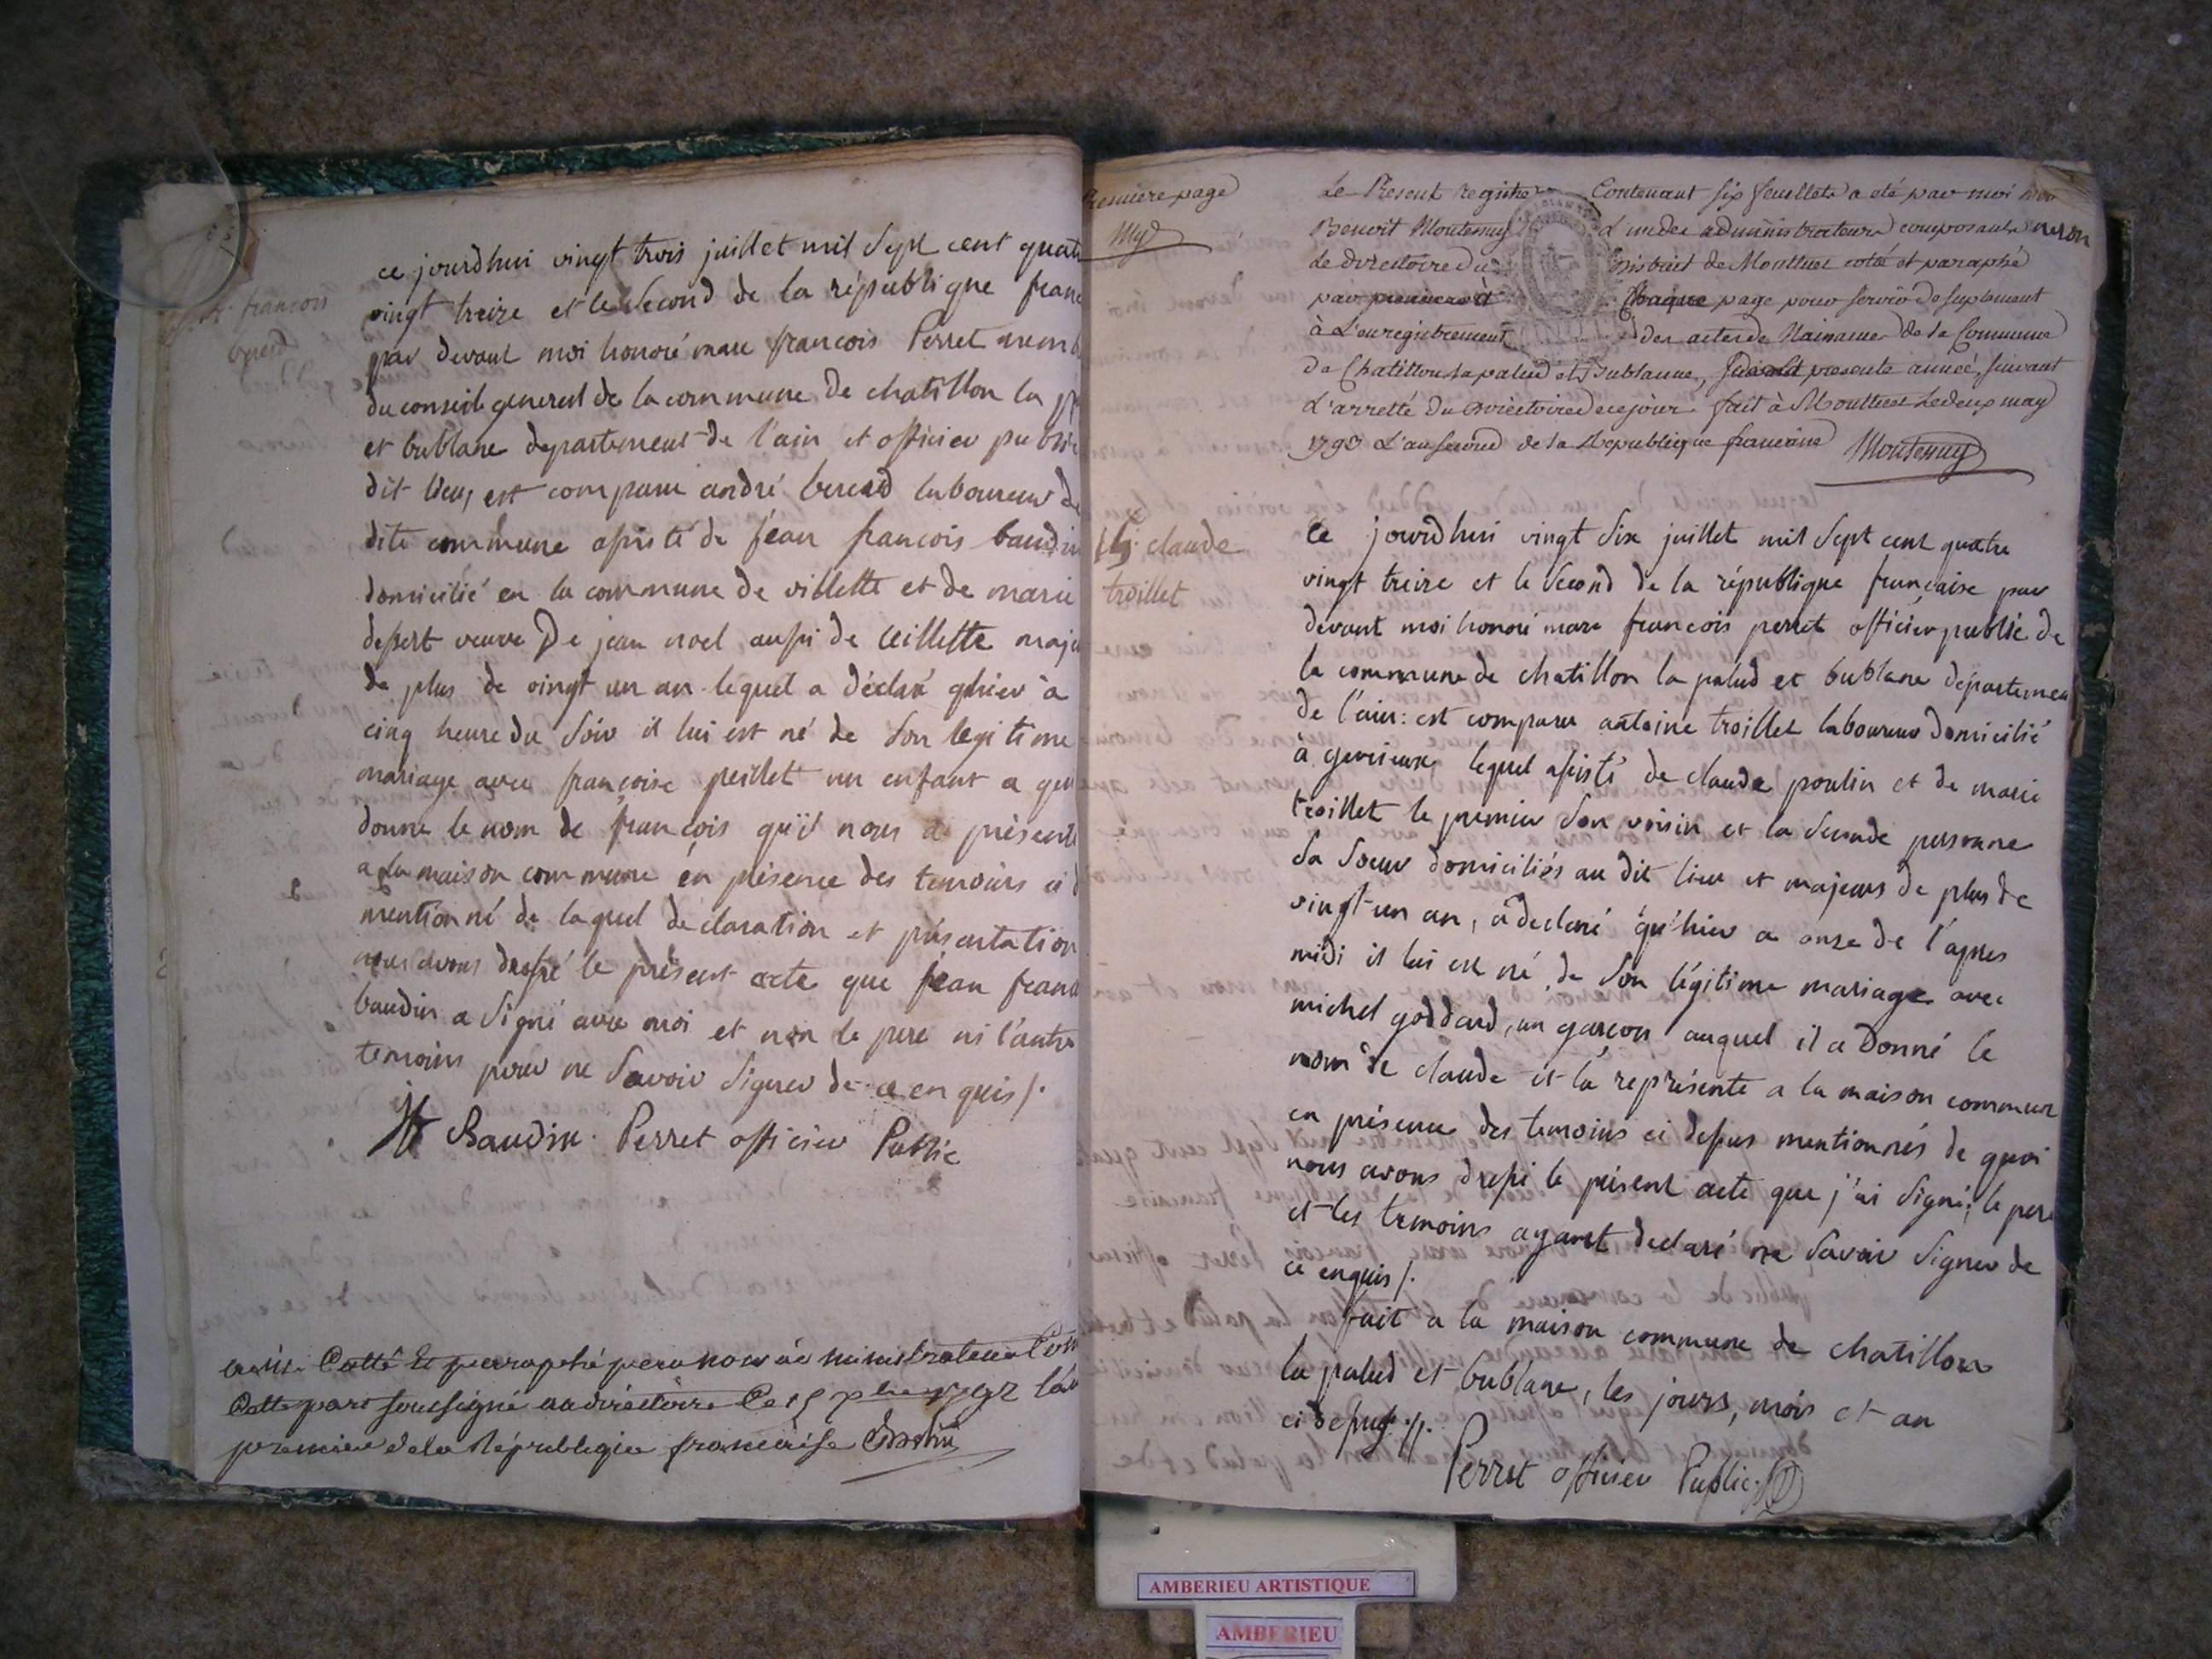 françois
bererd
ce jourdhui vingt trois juillet mil Sept cent quat
vingt treize et le Second de la république franc
par devant moi honoré marc françois Perret memb
du conseil general de la commune de chatillon la p
et bublane departement de l'ain et officier public
dit lieu, est comparu andré bererd laboureur de
dite commune assisté de jean francois baudin
domicilié en la commune de villette et de marie
dessert veuve De jean noel aussi de villette maje
de plus de vingt un an lequel a déclaré qhier à
cinq heure du Soir il lui est né de Son legitime
mariage avec françoise peillet un enfant a qui
donne le nom de françois qu'il nous a présenté
a la maison commune en présence des temoins ci d
mentionné de laquel declaration et présentation
nous avons dressé le présent acte que jean franc
baudin a Signé avec moi et non le pere ni l'autre
temoins pour ne Savoir Signer de ce enquis /.
Jf Baudin. Perret officier Public
Cotté Et parraphé par nous administrateur
Cotte part soussigné au directoire Ce 15 1792 l'an
premier de la République francaise
Premiere page
My
Le Present Registre Contenant six feuillets a été par moi
Benoit Mouternuy L'un des administrateurs composants
Le directoire Du District de Montluel coté et paraphé
par premiere et Chaque page pour servir de suplement
à L'enregistrement des actes de Naissances de la Commune
de Chatillon la palud et Bublanne, presente année, suivant
L'arretté Du Directoire de ce jour. fait à Montluel Le deux may
1793 L'an second de la Republique francaise Mouternuy
15. claude
troillet
Ce jourdhui vingt Six juillet mil Sept cent quatre
vingt treize et le Second de la république française par
devant moi honoré marc francois perret officier public de
la commune de chatillon la palud et bublane départemen
de l'ain: est comparu antoine troillet laboureur domicilié
à gevrieux lequel assisté de claude poulin et de marie
troillet le premier Son voisin et la Seconde personne
Sa Soeur domiciliés au dit lieu et majeurs de plus de
vingt-un an, a déclaré qu'hier a onze de l'apres
midi il lui est né de Son légitime mariage avec
michel goddard, un garcon auquel il a Donné le
nom de claude et l'a représenté a la maison commun
en présence des temoins ci dessus mentionnés de quoi
nous avons dressé le présent acte que j'ai Signé, le pere
et les temoins ayant declaré ne Savoir Signer de
ce enquis /.
fait a la maison commune de chatillon
la palud et bublane, les jours, mois et an
ci dessus //.
Perret officier Public
AMBERIEU ARTISTIQUE
AMBERIEU